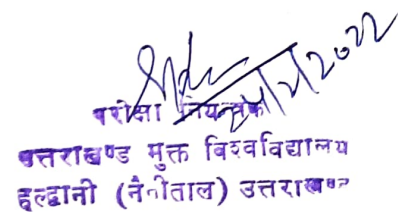 24/2/2022
परीक्षा नियन्त्रक
उत्तराखण्ड मुक्त विश्वविद्यालय
हल्द्वानी (नैनीताल) उत्तराखण्ड